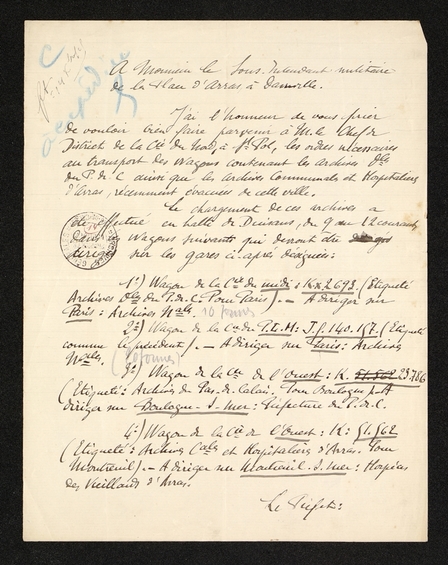 A Monsieur le Sous-Intendant militaire
de la Place d'Arras à Dainville.
J'ai l'honneur de vous prier
de vouloir bien faire parvenir à M. le Chef de
District de la Cie du Nord, à St Pol, les ordres nécessaires
au transport des wagons contenant les archives Dles
du P. de C. ainsi que les Archives Communales et Hospitalières
d'Arras, récemment évacuées de cette ville.
Le chargement de ces archives a
été effectué en halte de Duisans, du 9 au 12 courant,
dans les wagons suivants qui devront être
dirigés sur les gares ci-après désignées:
1º) Wagon de la Cie du midi: K x 2693. (Etiqueté
Archives Dles du P. de C. Pour Paris). — A diriger sur
Paris: Archives Nales. 10 tonnes
2º) Wagon de la Cie du P.L.M: J.f. 140.157. (Etiqueté
comme le précédent). — A diriger sur Paris: Archives
Nales. (10 tonnes)
3º) Wagon de la Cie de l'Ouest: K. 23.786
(Etiqueté: Archives du Pas-de-Calais. Pour Boulogne). — A
diriger sur Boulogne-s-mer: Préfecture du P. de C.
4º) Wagon de la Cie de l'Ouest: K: 51.562
(Etiqueté: Archives Cales et Hospitalières d'Arras. Pour
Montreuil). — A diriger sur Montreuil-s-mer: Hospice
des Vieillards d'Arras.
Le Préfet: